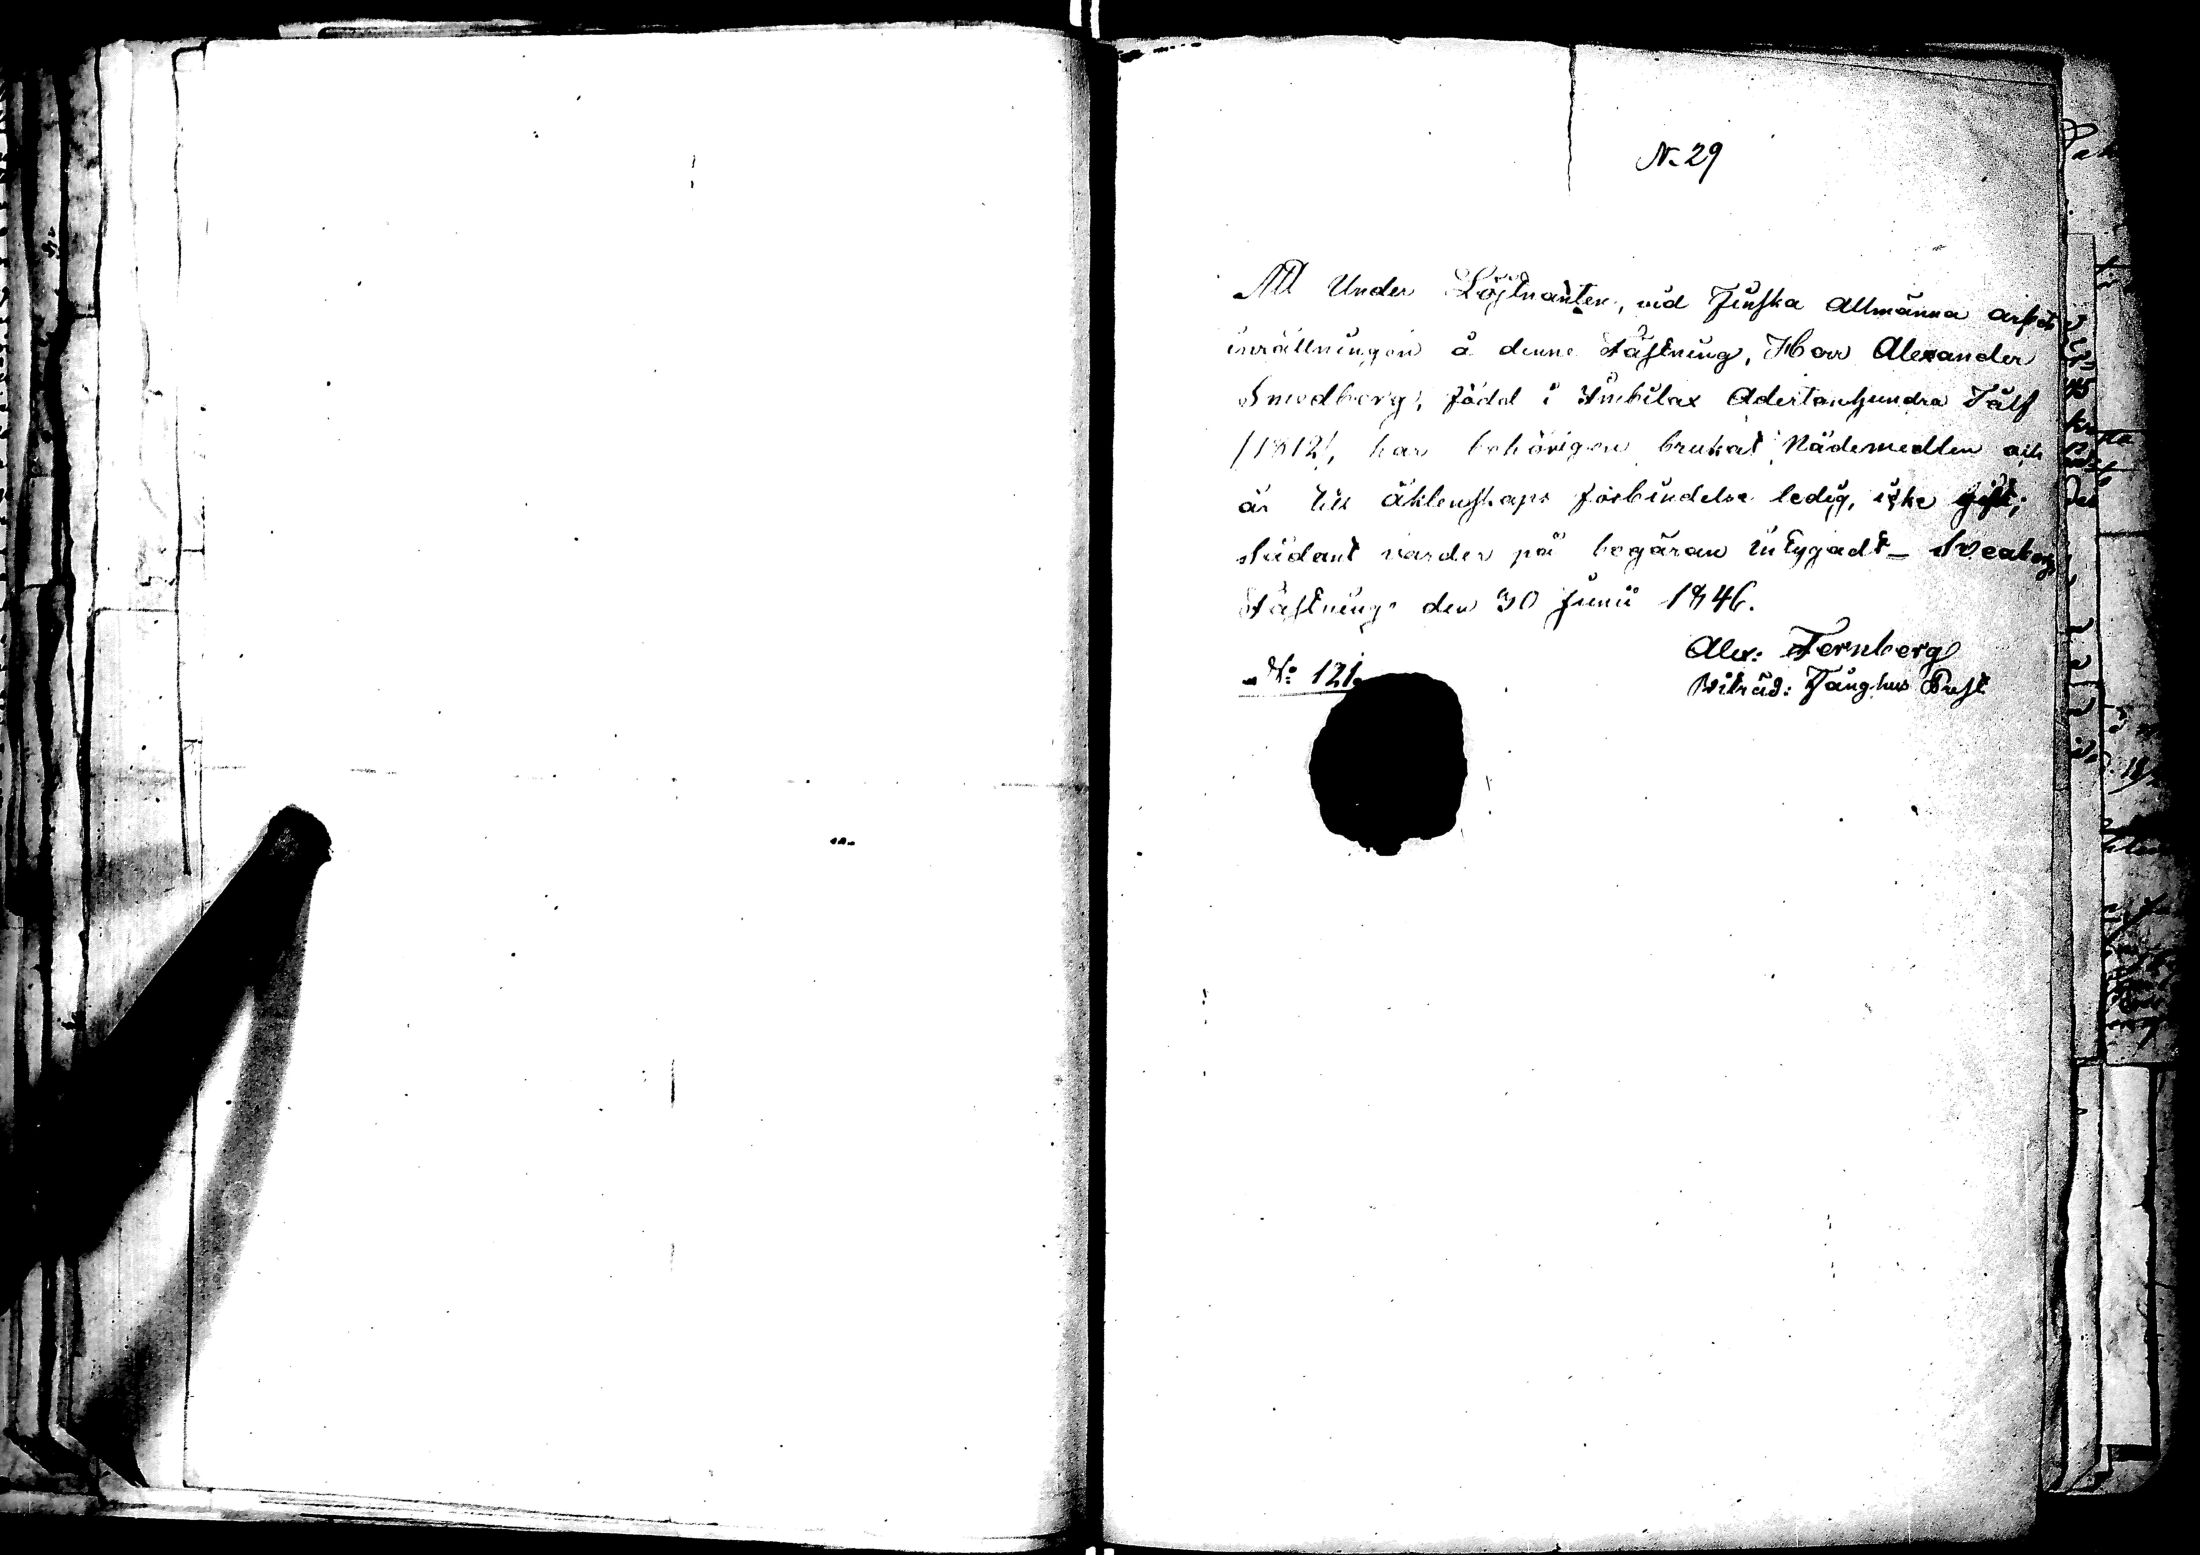 N. 29
Att Under Löjtnanten, vid Finska Allmänna arbets
inrättningen å denne Fästning, Herr Alexander
Smedberg, född i Adertonhundra Tålf
/1812/, har behörigen brukat Nådemedlen och
är till äktenskaps förbindelse ledig, icke gift;
sådant varder på begäran intygadt _ Sveaborgs
Fästning den 30 Junii 1846.
Alex: Fernberg
Biträd: Tånghus Prest
N: 121.